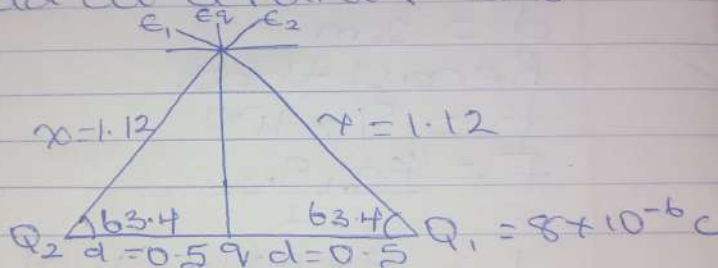 E₁ Eq E₂
x=1.12 x=1.12
63.4 63.4
Q₂ d=0.5 q d=0.5 Q₁ = 8×10⁻⁶ C